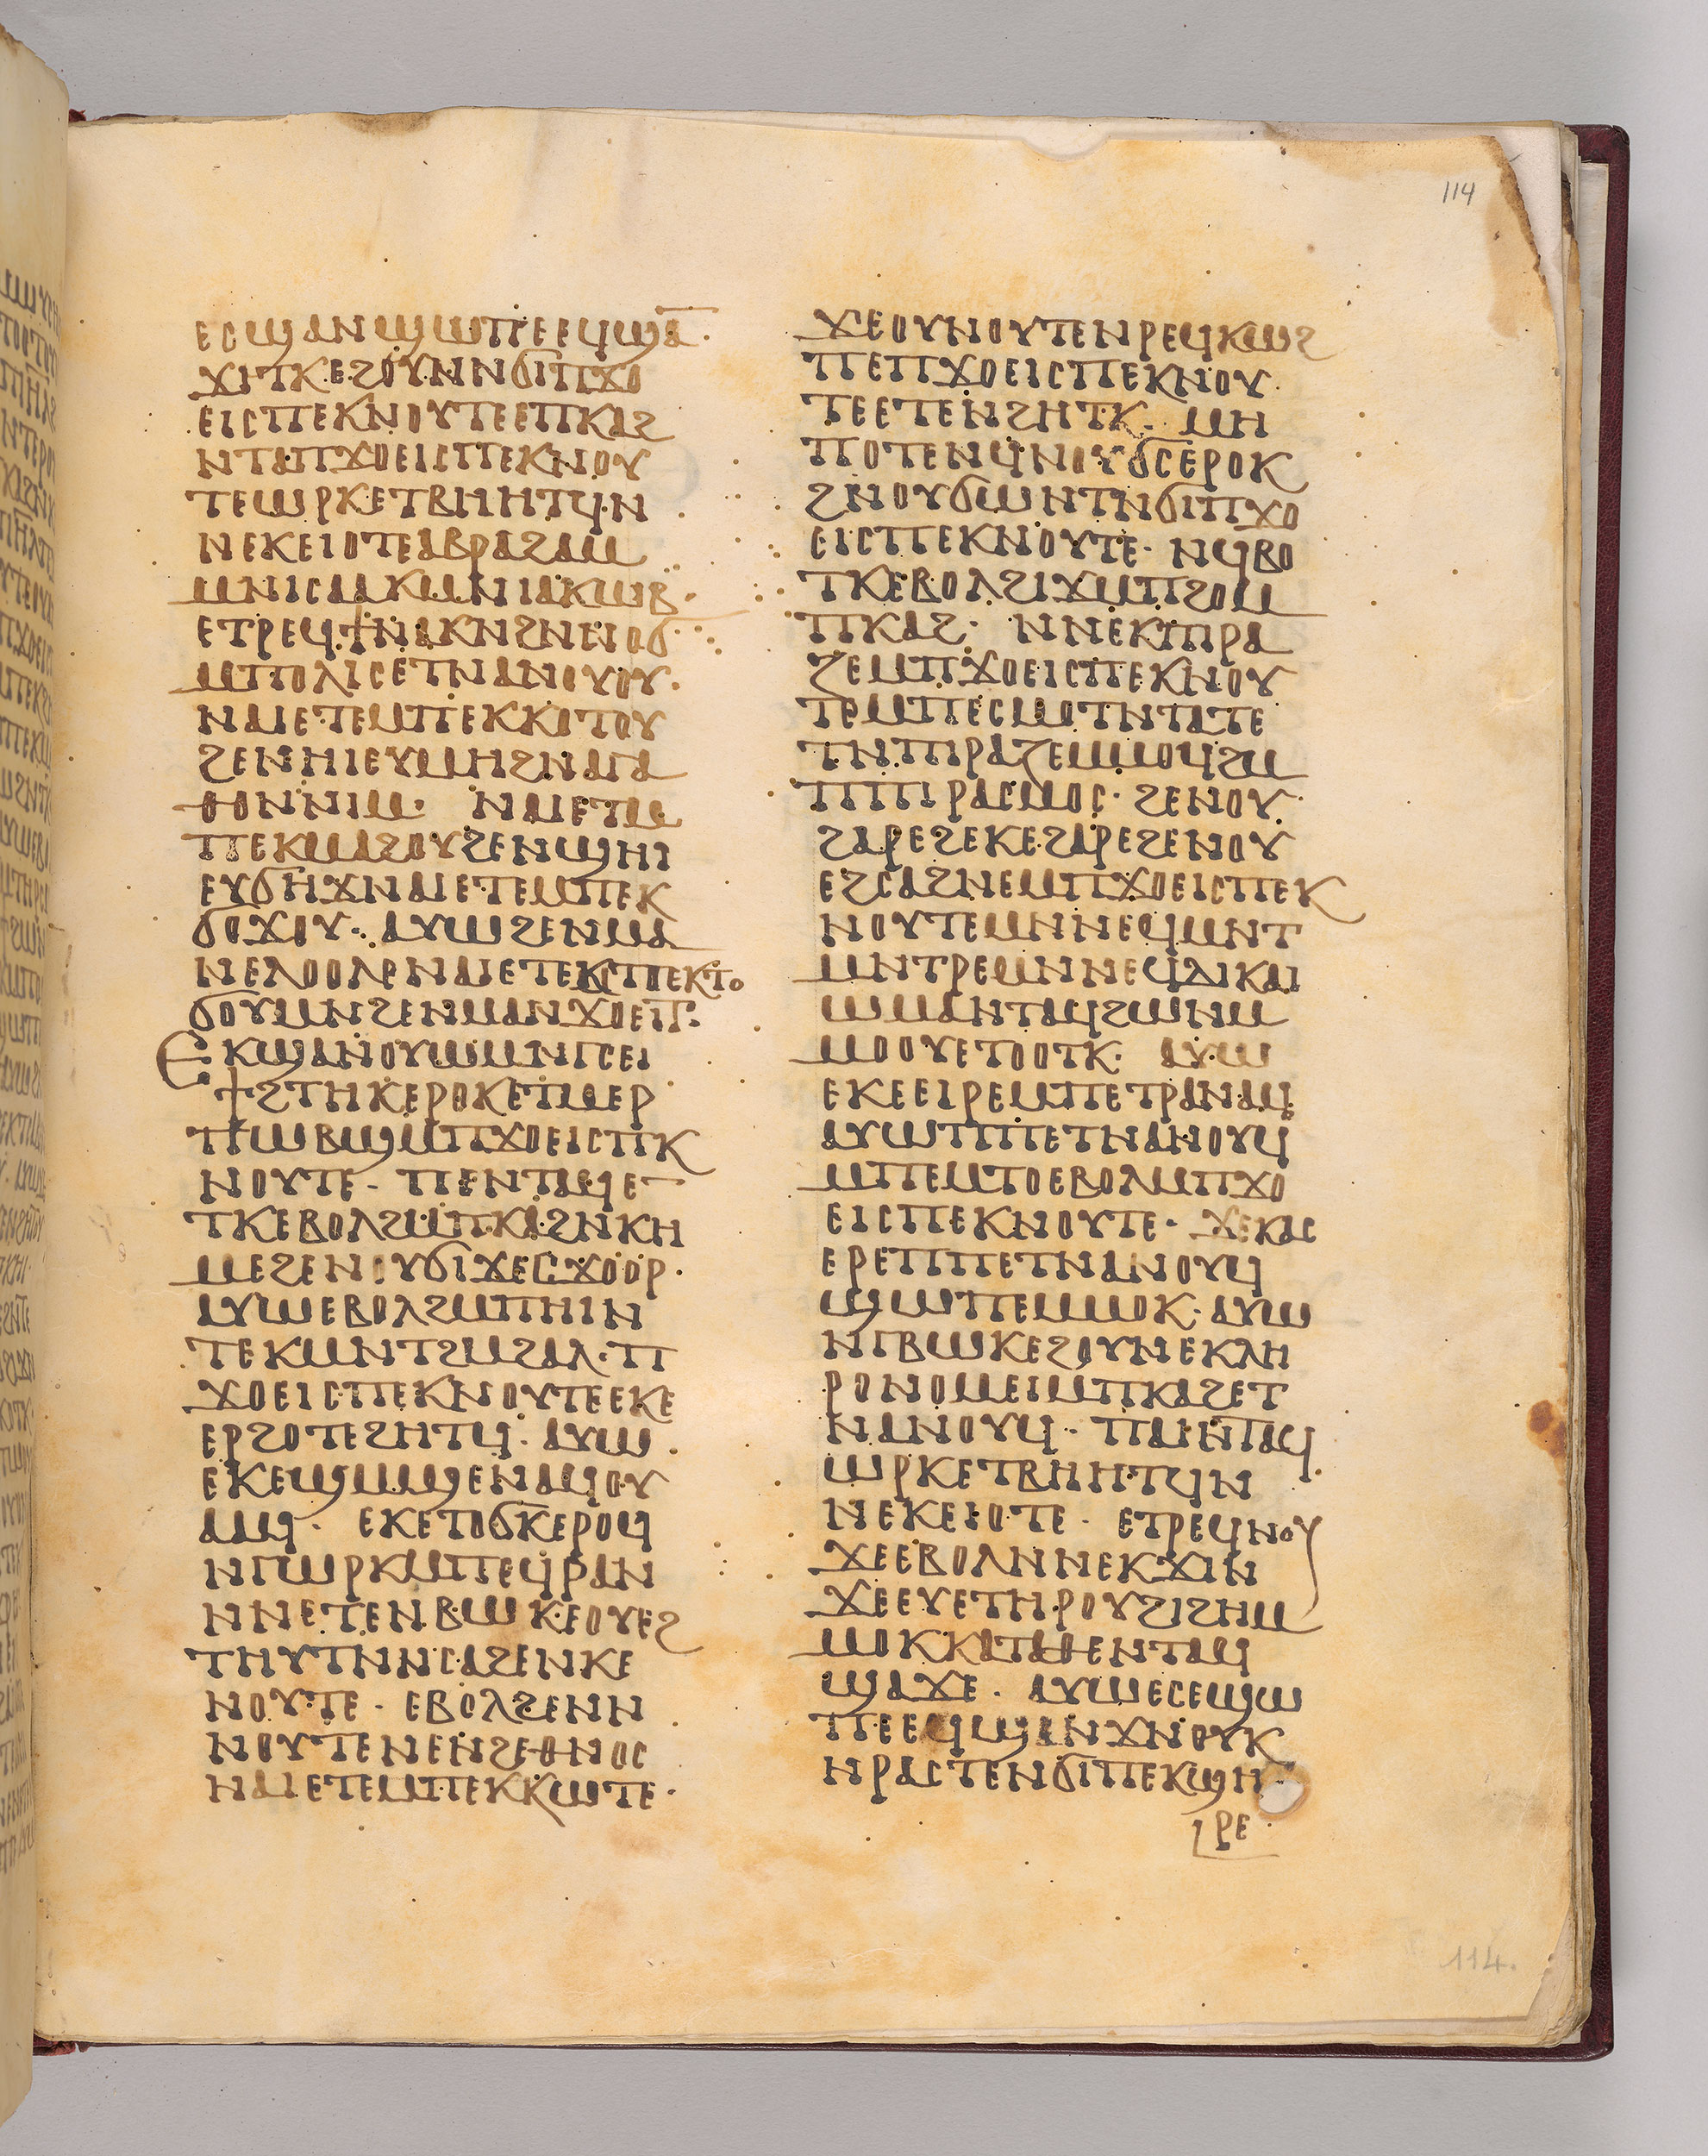 114
ⲉⲥϣⲁⲛϣⲱⲡⲉⲉϥϣⲁ·
ϫⲓⲧⲕⲉϩⲟⲩⲛⲛϭⲓⲡϫⲟ
ⲉⲓⲥⲡⲉⲕⲛⲟⲩⲧⲉⲉⲡⲕⲁϩ
ⲛⲧⲁⲡϫⲟⲉⲓⲥⲡⲉⲕⲛⲟⲩ
ⲧⲉⲱⲣⲕⲉⲧⲃⲏⲏⲧϥⲛ
ⲛⲉⲕⲉⲓⲟⲧⲉⲁⲃⲣⲁϩⲁⲙ
ⲙⲛⲓⲥⲁⲁⲕⲙⲛⲓⲁⲕⲱⲃ·
ⲉⲧⲣⲉϥϯⲛⲁⲕⲛϩⲛⲛⲟϭ
ⲙⲡⲟⲗⲓⲥⲉⲧⲛⲁⲛⲟⲩⲟⲩ·
ⲛⲁⲓⲉⲧⲉⲙⲡⲉⲕⲕⲟⲧⲟⲩ
ϩⲉⲛⲏⲓⲉⲩⲙⲏϩⲛⲁⲅⲁ
ⲑⲟⲛⲛⲓⲙ· ⲛⲁⲓⲉⲧⲙ
ⲡⲉⲕⲙⲁϩⲟⲩϩⲉⲛϣⲏⲓ
ⲉⲩϭⲏϫⲛⲁⲓⲉⲧⲉⲙⲡⲉⲕ
ϭⲟϫⲟⲩ· ⲁⲩⲱϩⲉⲛⲙⲁ
ⲛⲉⲗⲟⲟⲗⲉⲛⲁⲓⲉⲧⲉⲙⲡⲉⲕⲧⲟ
ϭⲟⲩⲙⲛϩⲉⲛⲙⲁⲛϫⲟⲉⲓⲧ·
ⲉⲕϣⲁⲛⲟⲩⲱⲙⲛⲅⲥⲉⲓ
ϯϩⲧⲏⲕⲉⲣⲟⲕⲉⲧⲙⲉⲣ
ⲡⲱⲃϣⲙⲡϫⲟⲉⲓⲥⲡⲕ
ⲛⲟⲩⲧⲉ· ⲡⲉⲛⲧⲁϥⲉ
ⲧⲕⲉⲃⲟⲗϩⲙⲡⲕⲁϩⲛⲕⲏ
ⲙⲉϩⲉⲛⲟⲩϭⲓϫⲉⲥϫⲟⲟⲣ·
ⲁⲩⲱⲉⲃⲟⲗϩⲙⲡⲏⲓⲛ
ⲧⲉⲕⲙⲛⲧϩⲙϩⲁⲗ·ⲡ
ϫⲟⲉⲓⲥⲡⲉⲕⲛⲟⲩⲧⲉⲉⲕⲉ
ⲉⲣϩⲟⲧⲉϩⲏⲧϥ· ⲁⲩⲱ
ⲉⲕⲉϣⲙϣⲉⲛⲁϥⲟⲩ
ⲁⲁϥ· ⲉⲕⲉⲧⲟϭⲕⲉⲣⲟϥ
ⲛⲅⲱⲣⲕⲙⲡⲉϥⲣⲁⲛ
ⲛⲛⲉⲧⲉⲛⲃⲱⲕⲉⲟⲩⲉϩ
ⲧⲏⲩⲧⲛⲛⲥⲁϩⲉⲛⲕⲉ
ⲛⲟⲩⲧⲉ· ⲉⲃⲟⲗϩⲉⲛⲛ
ⲛⲟⲩⲧⲉⲛⲉⲛϩⲉⲑⲛⲟⲥ
ⲛⲁⲓⲉⲧⲉⲙⲡⲉⲕⲕⲱⲧⲉ·
ϫⲉⲟⲩⲛⲟⲩⲧⲉⲛⲣⲉϥⲕⲱϩ
ⲡⲉⲡϫⲟⲉⲓⲥⲡⲉⲕⲛⲟⲩ
ⲧⲉⲉⲧⲉⲛϩⲏⲧⲕ· ⲙⲏ
ⲡⲟⲧⲉⲛϥⲛⲟⲩϭⲥⲉⲣⲟⲕ
ϩⲛⲟⲩϭⲱⲛⲧⲛϭⲓⲡϫⲟ
ⲉⲓⲥⲡⲉⲕⲛⲟⲩⲧⲉ· ⲛϥⲃⲟ
ⲧⲕⲉⲃⲟⲗϩⲓϫⲙⲡϩⲟⲙ
ⲡⲕⲁϩ· ⲛⲛⲉⲕⲡⲓⲣⲁ
ⲍⲉⲙⲡϫⲟⲉⲓⲥⲡⲉⲕⲛⲟⲩ
ⲧⲉⲙⲡⲉⲥⲙⲟⲧⲛⲧⲁⲧⲉ
ⲧⲛⲡⲓⲣⲁⲍⲉⲙⲙⲟϥϩⲙ
ⲡⲡⲓⲣⲁⲥⲙⲟⲥ· ϩⲉⲛⲟⲩ
ϩⲁⲣⲉϩⲉⲕⲉϩⲁⲣⲉϩⲉⲛⲟⲩ
ⲉϩⲥⲁϩⲛⲉⲙⲡϫⲟⲉⲓⲥⲡⲉⲕ
ⲛⲟⲩⲧⲉⲙⲛⲛⲉϥⲙⲛⲧ
ⲙⲛⲧⲣⲉⲙⲛⲛⲉϥⲇⲓⲕⲁⲓ
ⲱⲙⲁⲛⲧⲁϥϩⲱⲛⲙ
ⲙⲟⲟⲩⲉⲧⲟⲟⲧⲕ· ⲁⲩⲱ
ⲉⲕⲉⲉⲓⲣⲉⲙⲡⲉⲧⲣⲁⲛⲁϥ
ⲁⲩⲱⲡⲡⲉⲧⲛⲁⲛⲟⲩϥ
ⲙⲡⲉⲙⲧⲟⲉⲃⲟⲗⲙⲡϫⲟ
ⲉⲓⲥⲡⲉⲕⲛⲟⲩⲧⲉ· ϫⲉⲕⲁⲥ
ⲉⲣⲉⲡⲡⲉⲧⲛⲁⲛⲟⲩϥ
ϣⲱⲡⲉⲙⲙⲟⲕ· ⲁⲩⲱ
ⲛⲅⲃⲱⲕⲉϩⲟⲩⲛⲉⲕⲗⲏ
ⲣⲟⲛⲟⲙⲉⲓⲙⲡⲕⲁϩⲉⲧ
ⲛⲁⲛⲟⲩϥ· ⲡⲁⲓⲛⲧⲁϥ
ⲱⲣⲕⲉⲧⲃⲏⲏⲧϥⲛ
ⲛⲉⲕⲉⲓⲟⲧⲉ· ⲉⲧⲣⲉϥⲛⲟⲩ
ϫⲉⲉⲃⲟⲗⲛⲛⲉⲕϫⲓⲛ
ϫⲉⲉⲩⲉⲧⲏⲣⲟⲩϩⲓϩⲏⲙ
ⲙⲟⲕⲕⲁⲧⲁⲑⲉⲛⲧⲁϥ
ϣⲁϫⲉ· ⲁⲩⲱⲉⲥⲉϣⲱ
ⲡⲉⲉϥϣⲁⲛϫⲛⲟⲩⲕ
ⲛⲣⲁⲥⲧⲉⲛϭⲓⲡⲉⲕϣⲏ
ⲣⲉ·
114.